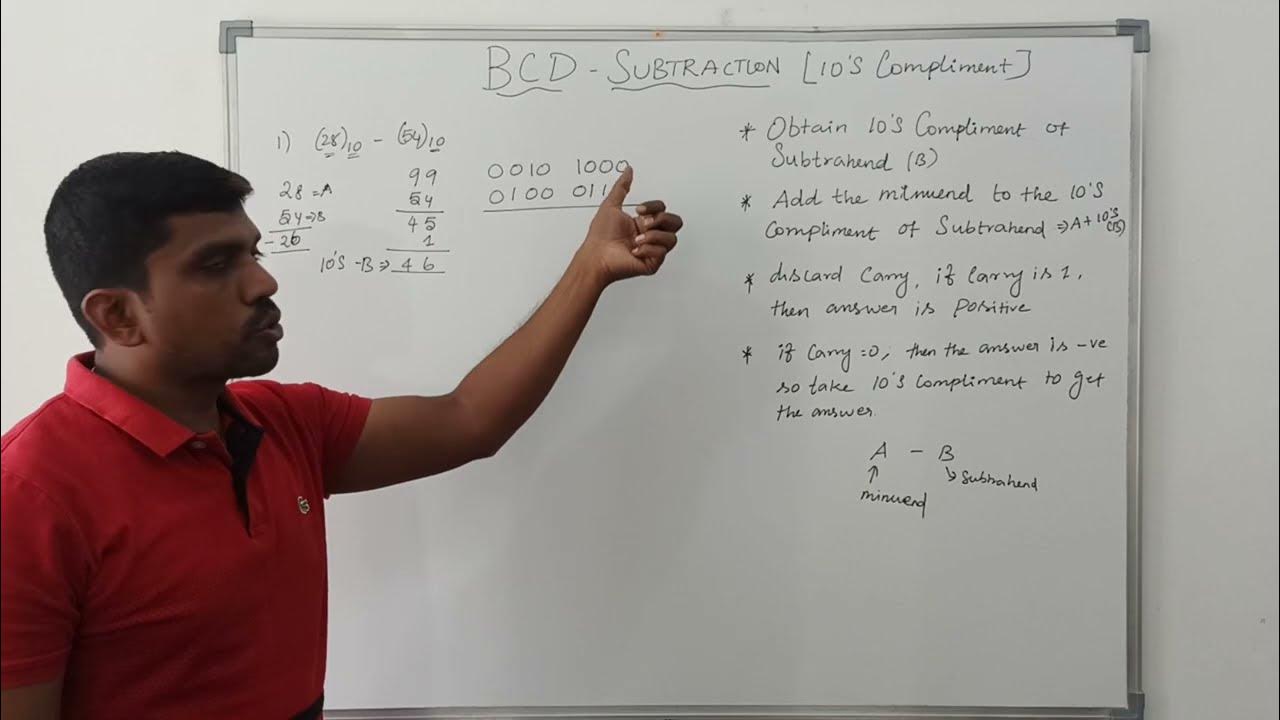 BCD - SUBTRACTION [10'S Compliment]
1) (28)10 - (54)10
28 ⇒A
54 ⇒B
- 26
99
54
45
1
10'S -B ⇒ 46
0010 1000
0100 011
* Obtain 10'S Compliment of
Subtrahend (B)
* Add the minuend to the 10'S
Compliment of Subtrahend ⇒ A + 10'S (B)
* discard Carry, if Carry is 1,
then answer is positive
* if Carry =0, then the answer is -ve
so take 10'S Compliment to get
the answer.
A - B
minuend
subtrahend